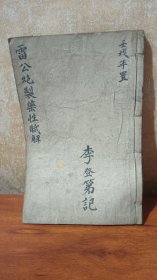 壬戌年置
雷公炮製藥性賦解
李登第記